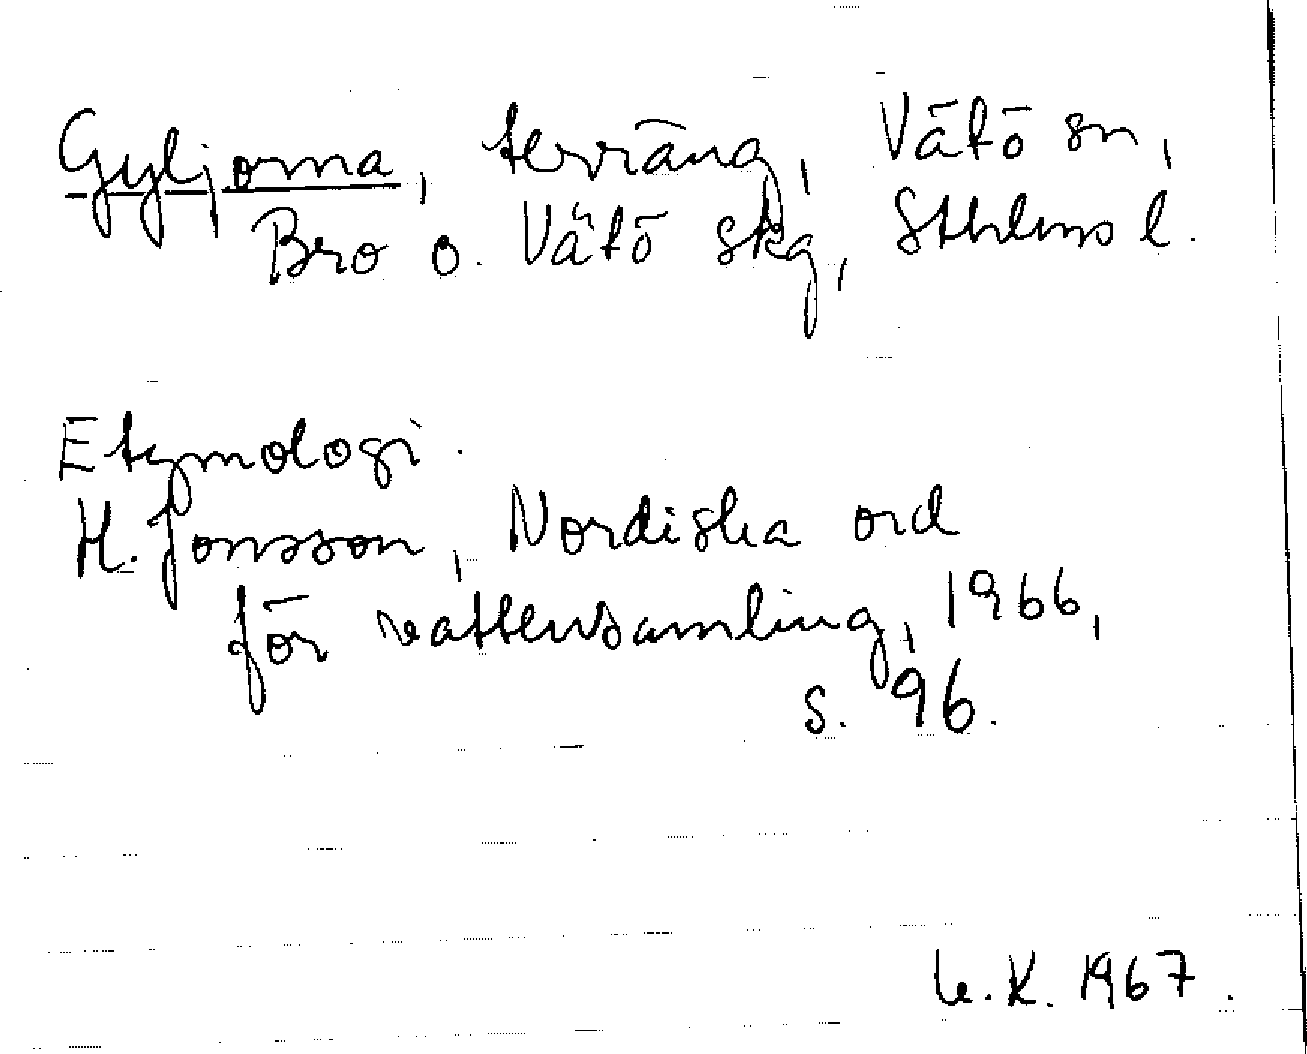 Gyljorna, terräng, Vätö sn,
Bro o. Vätö skg, Sthlms l.
Etymologi.
H. Jonsson, Nordiska ord
för vattensamling, 1966,
s. 96.
K. 1967.